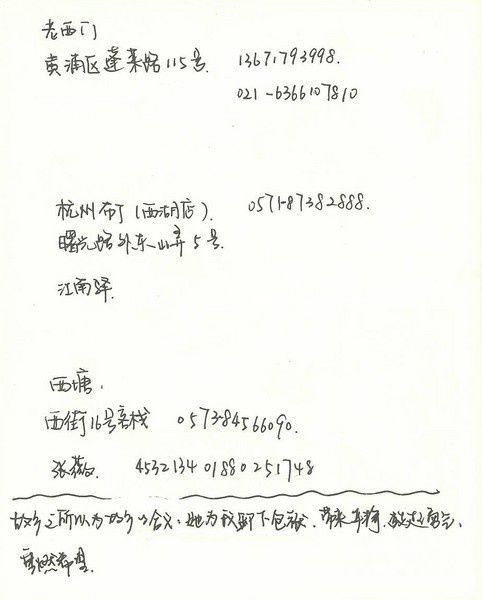 老西门
黄浦区蓬莱路115号. 13671793998.
021-6366107810
杭州布丁(西湖店). 0571-87382888.
曙光路外东山弄5号.
江南驿.
西塘.
西街16号客栈 0573-84566090.
张薇. 4532134 01880251748
故乡之所以为故乡的含义,她为我卸下包袱、带来平静、鼓起勇气、
重燃希望.